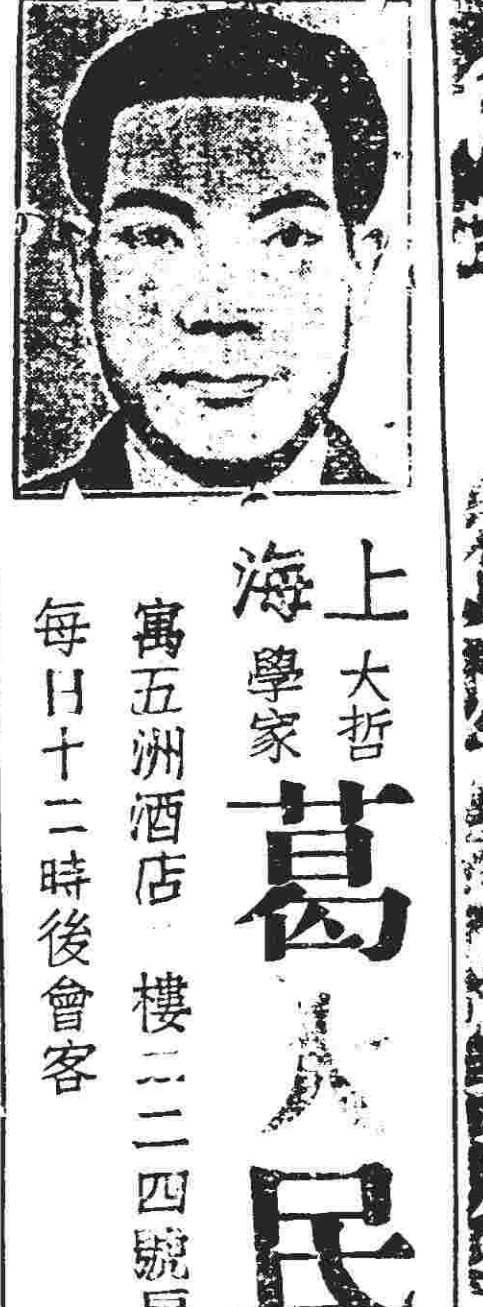 上海
大哲
學家
葛民
寓五洲酒店樓二二四號
每日十二時後會客